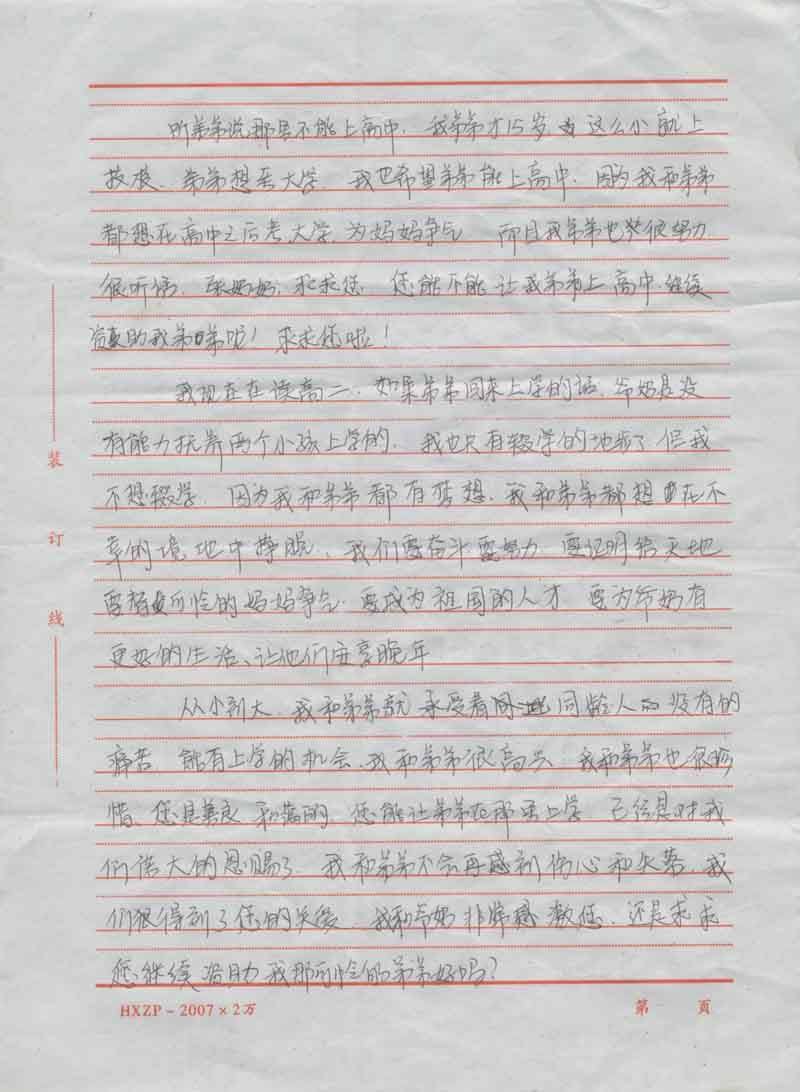 听弟弟说那里不能上高中，我弟弟才15岁 这么小就上
技校，弟弟想上大学，我也希望弟弟能上高中，因为我和弟弟
都想在高中之后考大学，为妈妈争气 而且我弟弟也很努力
很听话，张奶奶，求求您，您能不能让我弟弟上高中，继续
资助我弟弟呢！求求您啦！
我现在在读高二，如果弟弟回来上学的话，爷奶是没
有能力抚养两个小孩上学的，我也只有辍学的地步了 但我
不想辍学，因为我和弟弟都有梦想，我和弟弟都想在不
幸的境地中挣脱，我们要奋斗 要努力 要证明给天地
要替可怜的妈妈争气，要成为祖国的人才 要为爷奶有
更好的生活、让他们安享晚年
从小到大，我和弟弟就承受着同龄人没有的
痛苦，能有上学的机会，我和弟弟很高兴 我和弟弟也很珍
惜，您是善良 和蔼的，您能让弟弟在那里上学，已经是对我
们偌大的恩赐了，我和弟弟不会再感到伤心和失落，我
们很得到了您的关爱，我和爷奶非常感激您，还是求求
您继续资助我那可怜的弟弟好吗？
装
订
线
HXZP-2007×2万
第 页